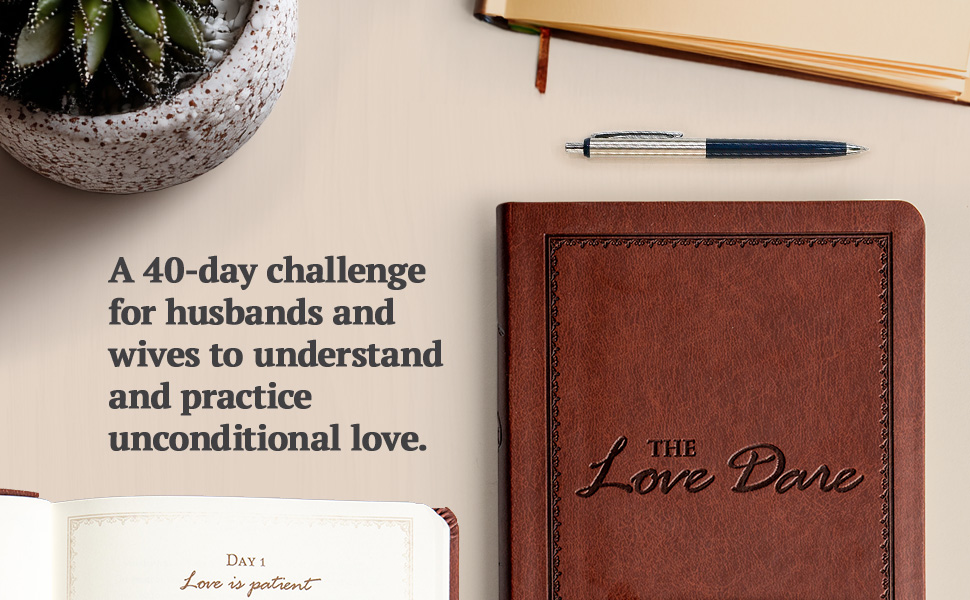 A 40-day challenge
for husbands and
wives to understand
and practice
unconditional love.
THE
Love Dare
DAY 1
Love is patient